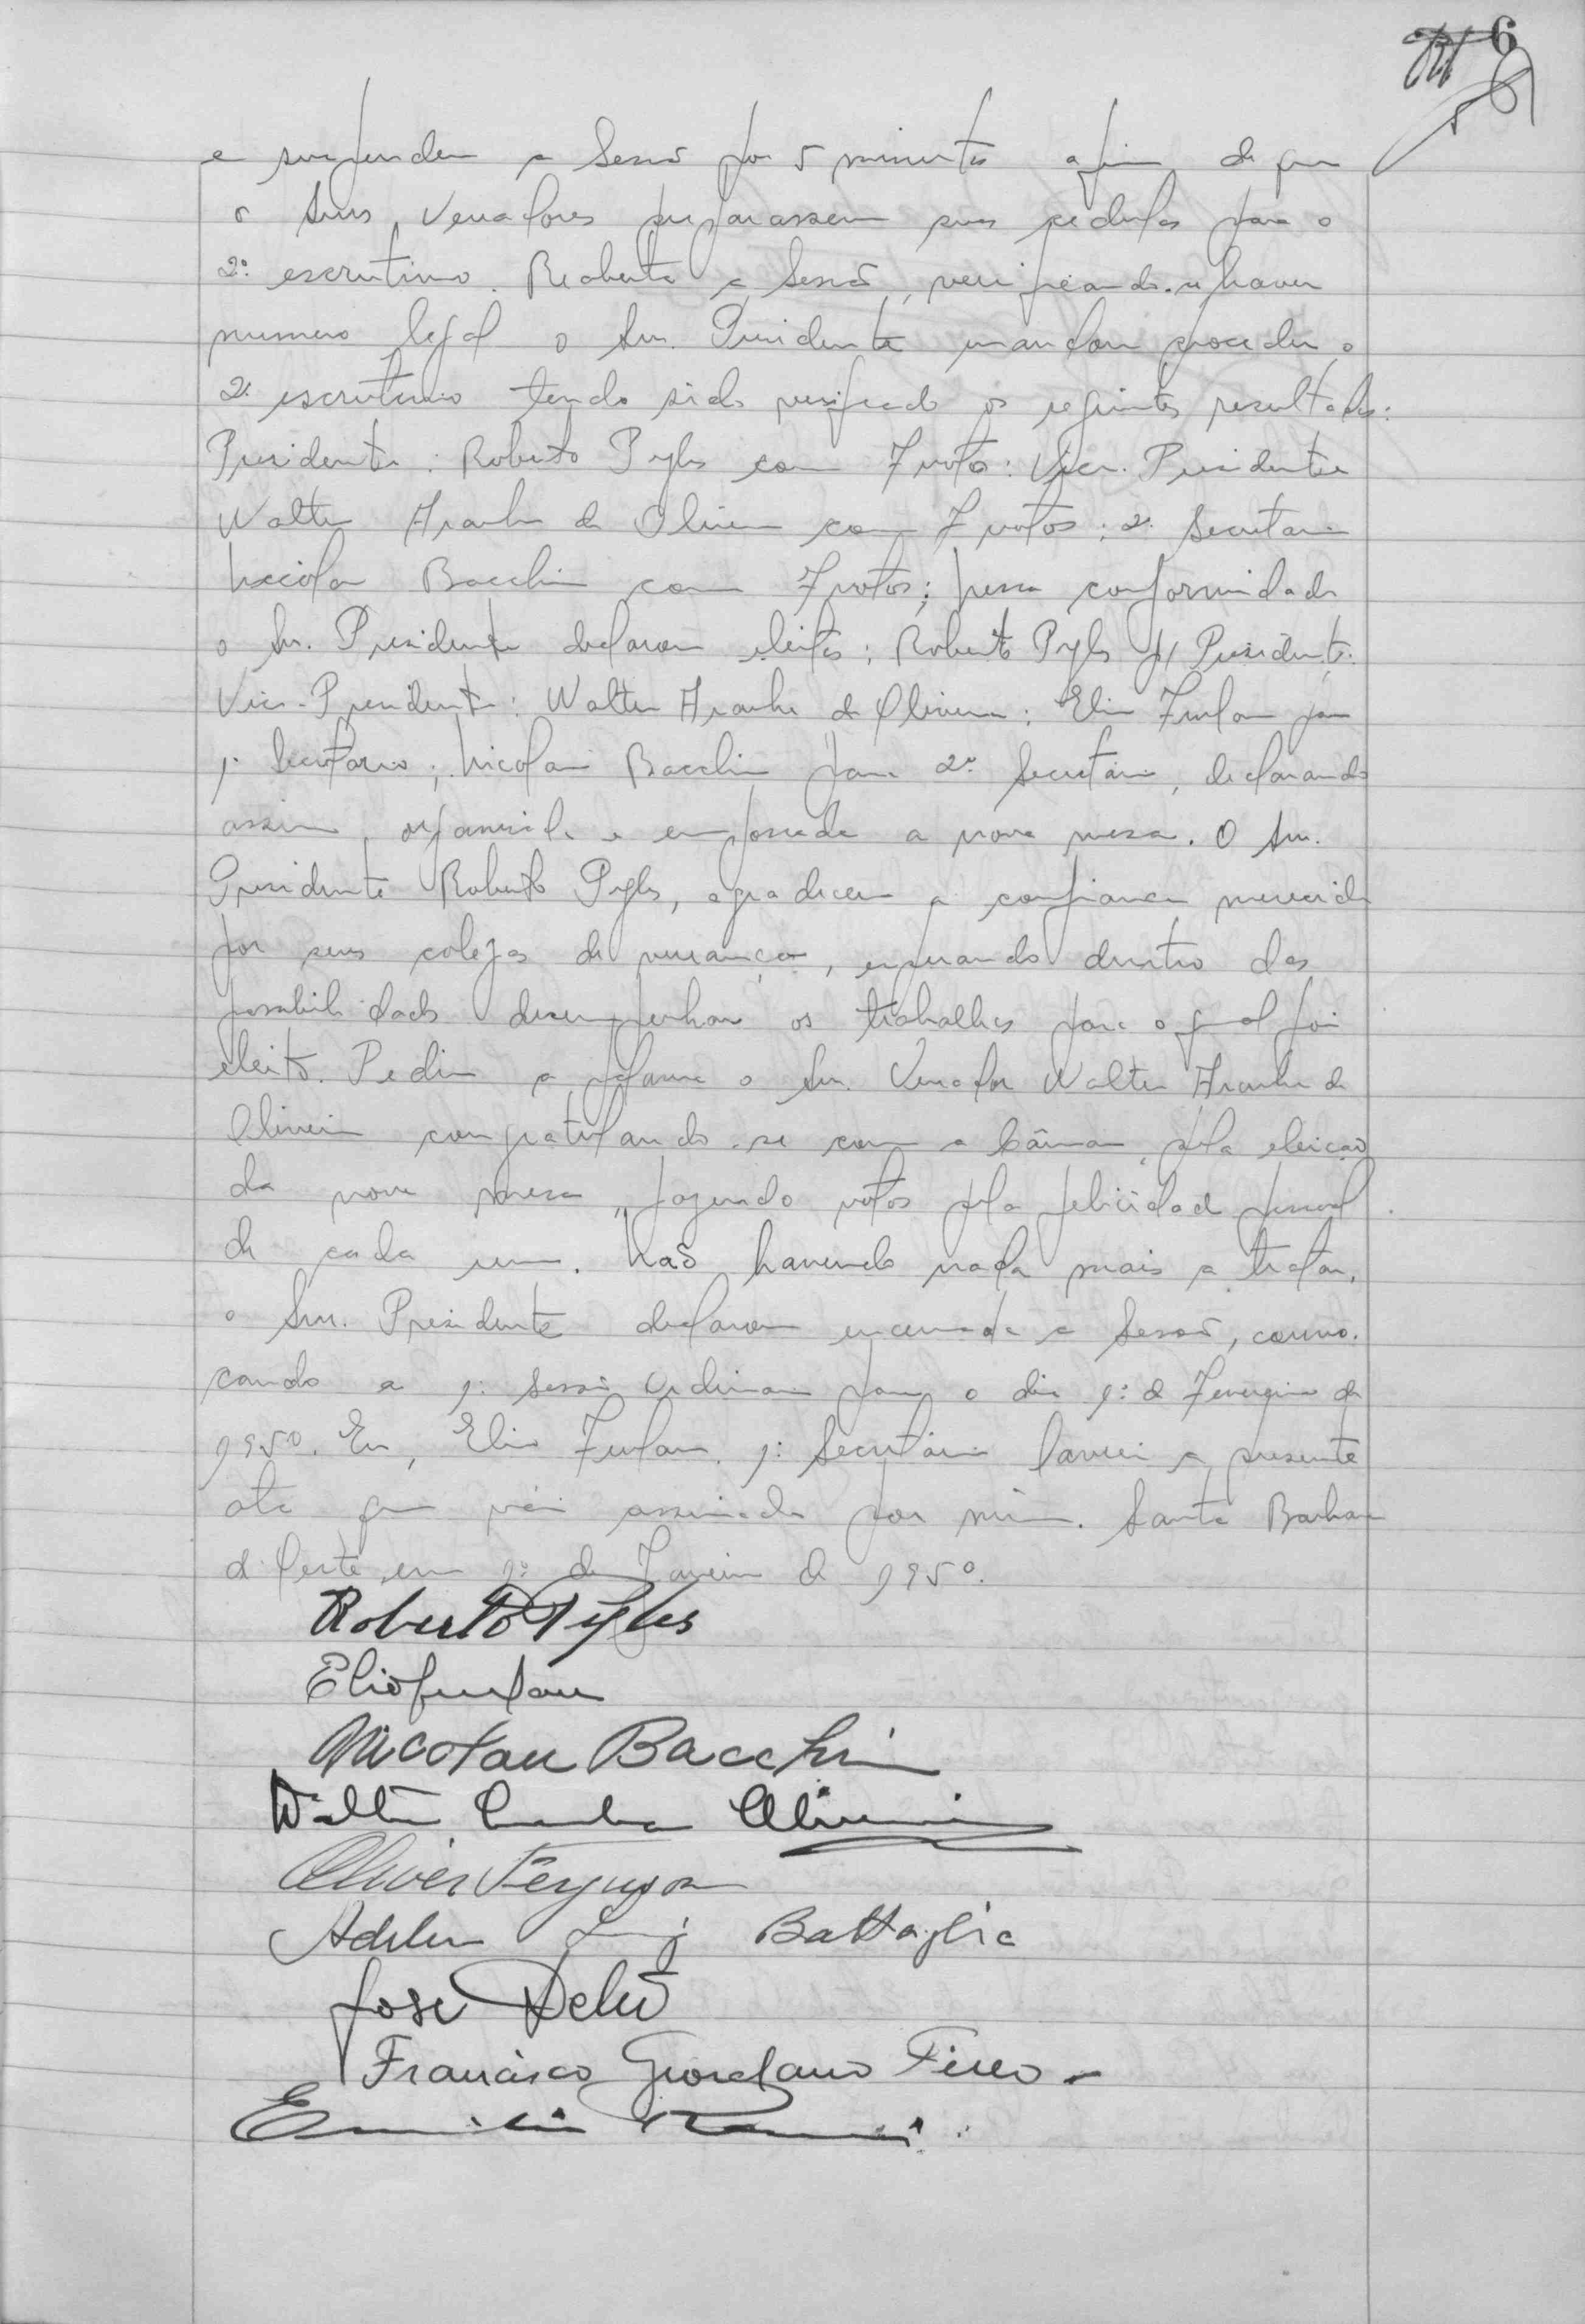 6
e suspendeu a Sessão por 5 minutos afim de que
os Snrs. Vereadores preparassem suas cedulas para o
2º escrutinio. Reaberta a Sessão, verificando-se haver
numero legal o Snr. Presidente mandou proceder o
2º escrutinio tendo sido verificado os seguintes resultados:
Presidente: Roberto Pyles com 7 votos: Vice-Presidente
Walter Aranha de Oliveira com 7 votos: 2º Secretario
Nicolau Bacchin com 7 votos; nessa conformidade
o Snr. Presidente declarou eleitos: Roberto Pyles p/ Presidente.
Vice-Presidente: Walter Aranha de Oliveira: Elio Furlan para
1º Secretario; Nicolau Bacchin para 2º Secretário, declarando
assim organisada e empossada a nova mesa. O Snr.
Presidente Roberto Pyles, agradeceu a confiança merecida
por seus colegas de vereança, esperando dentro das
possibilidades desempenhar os trabalhos para o qual foi
eleito. Pediu a palavra o Snr. Vereador Walter Aranha de
Oliveira congratulando-se com a Câmara, pela eleição
da nova mesa, fazendo votos pela felicidade pessoal
de cada um. Não havendo nada mais a tratar,
o Snr. Presidente declarou encerrada a Sessão, convo-
cando a 1ª Sessão Ordinaria para o dia 1º de Fevereiro de
1950. Eu, Elio Furlan, 1º Secretário lavrei a presente
ata que vai assinada por mim. Santa Barbara
d'Oeste, em 1º de Janeiro de 1950.
Roberto Pyles
Elio Furlan
Nicolau Bacchin
Walter Aranha Oliveira
Oliver Ferguson
Battaglia
José
Francisco Giordano
Emilio